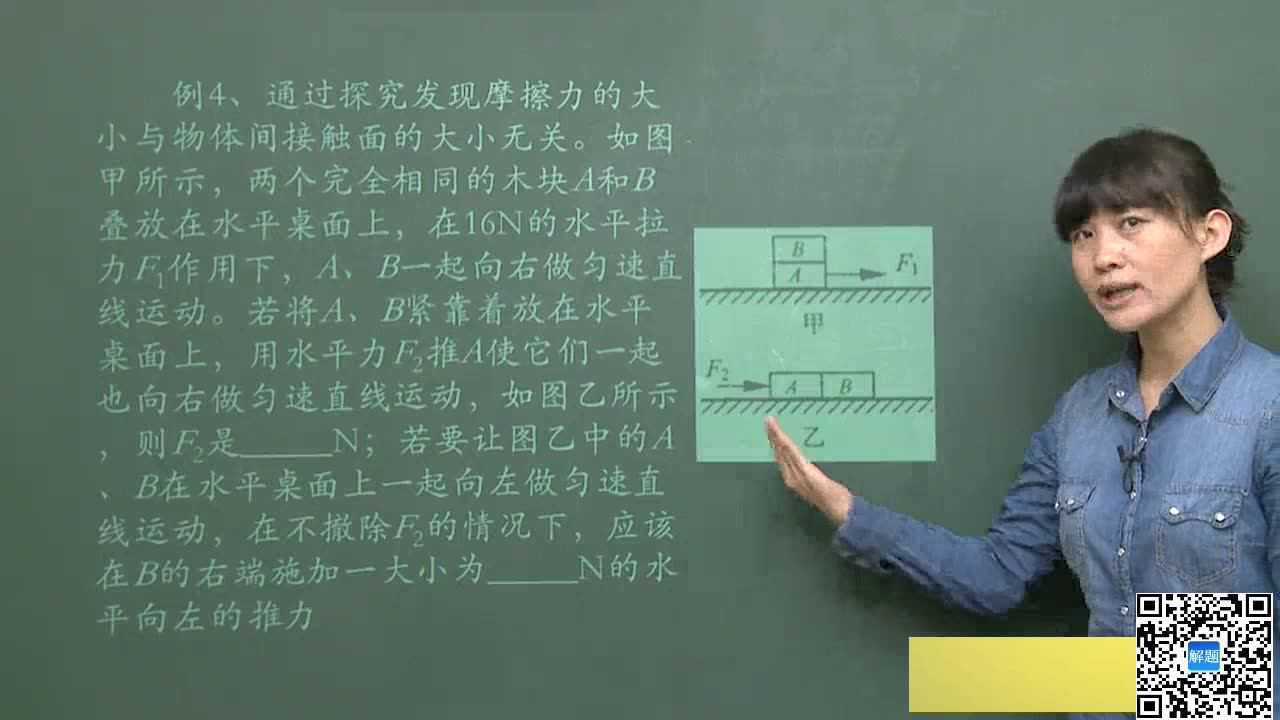 例4、通过探究发现摩擦力的大
小与物体间接触面的大小无关。如图
甲所示，两个完全相同的木块A和B
叠放在水平桌面上，在16N的水平拉
力F₁作用下，A、B一起向右做匀速直
线运动。若将A、B紧靠着放在水平
桌面上，用水平力F₂推A使它们一起
也向右做匀速直线运动，如图乙所示
，则F₂是_____N；若要让图乙中的A
、B在水平桌面上一起向左做匀速直
线运动，在不撤除F₂的情况下，应该
在B的右端施加一大小为_____N的水
平向左的推力
B
A
F₁
甲
F₂
A
B
乙
解题